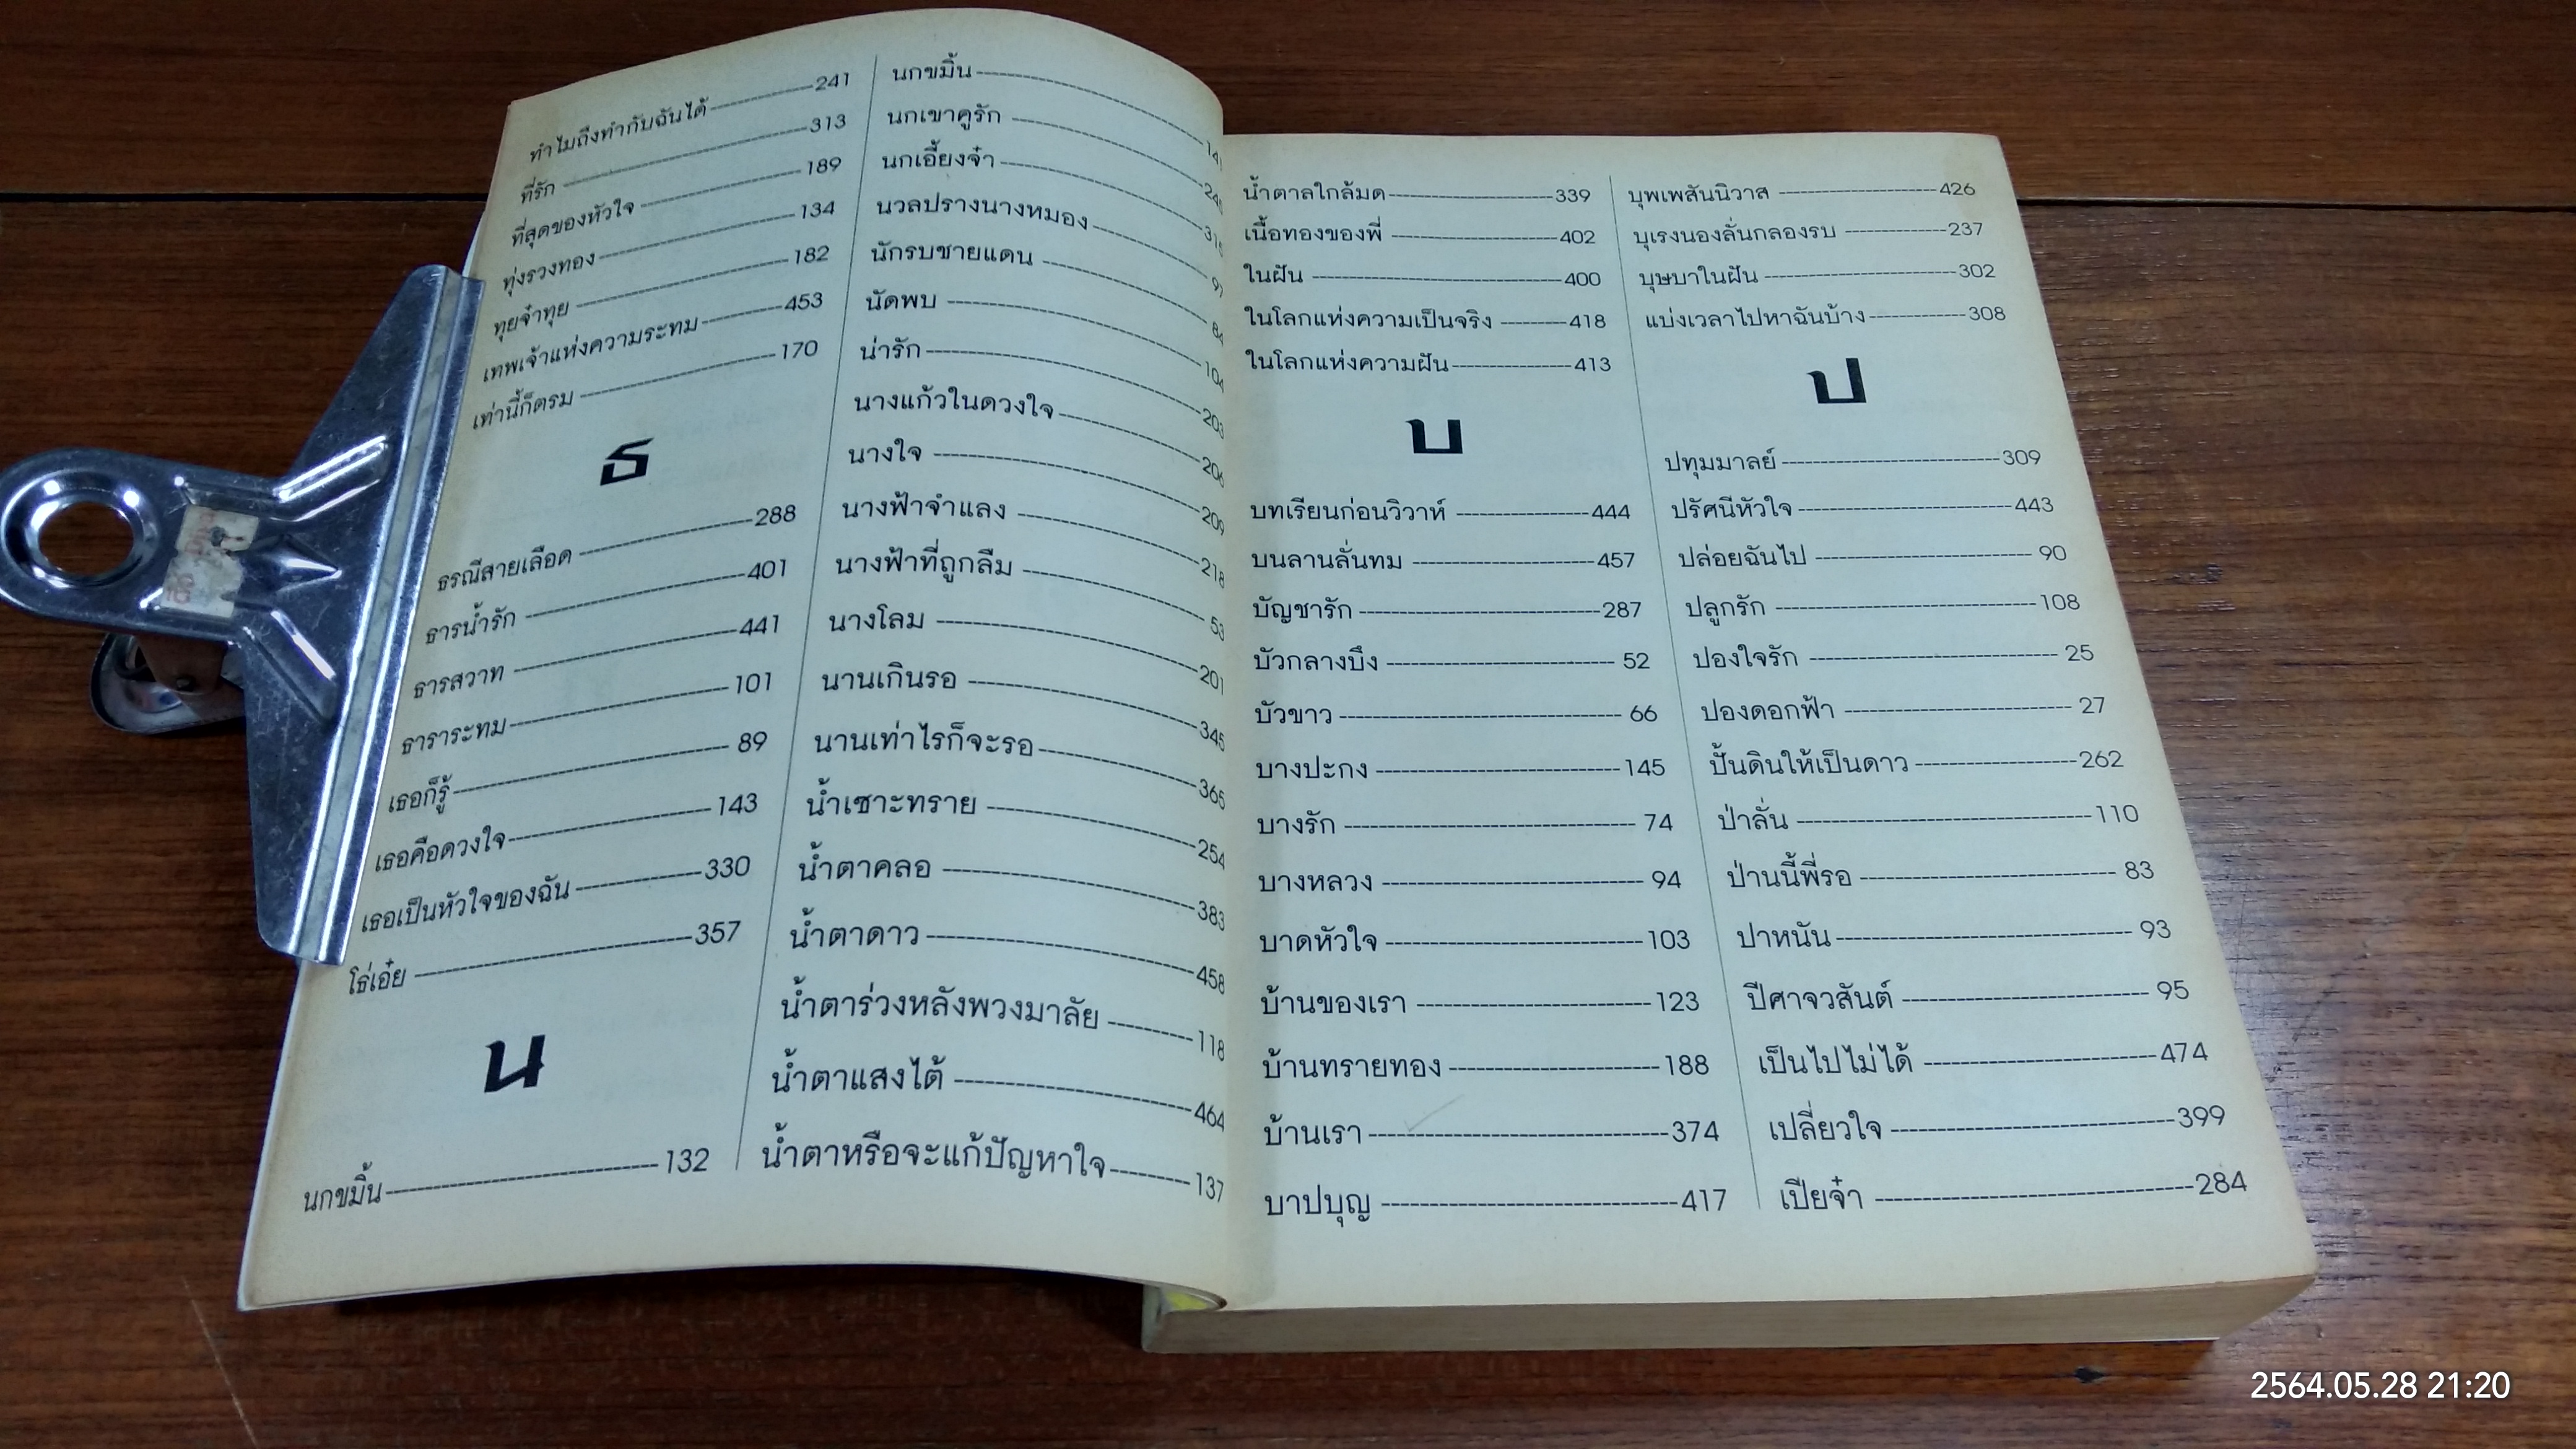 ทำไมถึงทำกับฉันได้ 241
ที่รัก 313
ที่สุดของหัวใจ 189
ทุ่งรวงทอง 134
ทุยจ๋าทุย 182
เทพเจ้าแห่งความระทม 453
เท่านี้ก็ตรม 170
ธ
ธรณีสายเลือด 288
ธารน้ำรัก 401
ธารสวาท 441
ธาราระทม 101
เธอก็รู้ 89
เธอคือดวงใจ 143
เธอเป็นหัวใจของฉัน 330
โธ่เอ๋ย 357
น
นกขมิ้น 132
นกขมิ้น 141
นกเขาคูรัก
นกเอี้ยงจ๋า
นวลปรางนางหมอง
นักรบชายแดน 84
นัดพบ 104
น่ารัก 203
นางแก้วในดวงใจ 206
นางใจ 209
นางฟ้าจำแลง 218
นางฟ้าที่ถูกลืม 53
นางโลม 201
นานเกินรอ 345
นานเท่าไรก็จะรอ 365
น้ำเซาะทราย 254
น้ำตาคลอ 383
น้ำตาดาว 458
น้ำตาร่วงหลังพวงมาลัย 118
น้ำตาแสงไต้ 464
น้ำตาหรือจะแก้ปัญหาใจ 137
น้ำตาลใกล้มด 339
เนื้อทองของพี่ 402
ในฝัน 400
ในโลกแห่งความเป็นจริง 418
ในโลกแห่งความฝัน 413
บ
บทเรียนก่อนวิวาห์ 444
บนลานลั่นทม 457
บัญชารัก 287
บัวกลางบึง 52
บัวขาว 66
บางปะกง 145
บางรัก 74
บางหลวง 94
บาดหัวใจ 103
บ้านของเรา 123
บ้านทรายทอง 188
บ้านเรา 374
บาปบุญ 417
บุพเพสันนิวาส 426
บุเรงนองลั่นกลองรบ 237
บุษบาในฝัน 302
แบ่งเวลาไปหาฉันบ้าง 308
ป
ปทุมมาลย์ 309
ปรัศนีหัวใจ 443
ปล่อยฉันไป 90
ปลูกรัก 108
ปองใจรัก 25
ปองดอกฟ้า 27
ปั้นดินให้เป็นดาว 262
ป่าลั่น 110
ป่านนี้พี่รอ 83
ปาหนัน 93
ปีศาจวสันต์ 95
เป็นไปไม่ได้ 474
เปลี่ยวใจ 399
เปียจ๋า 284
2564.05.28 21:20